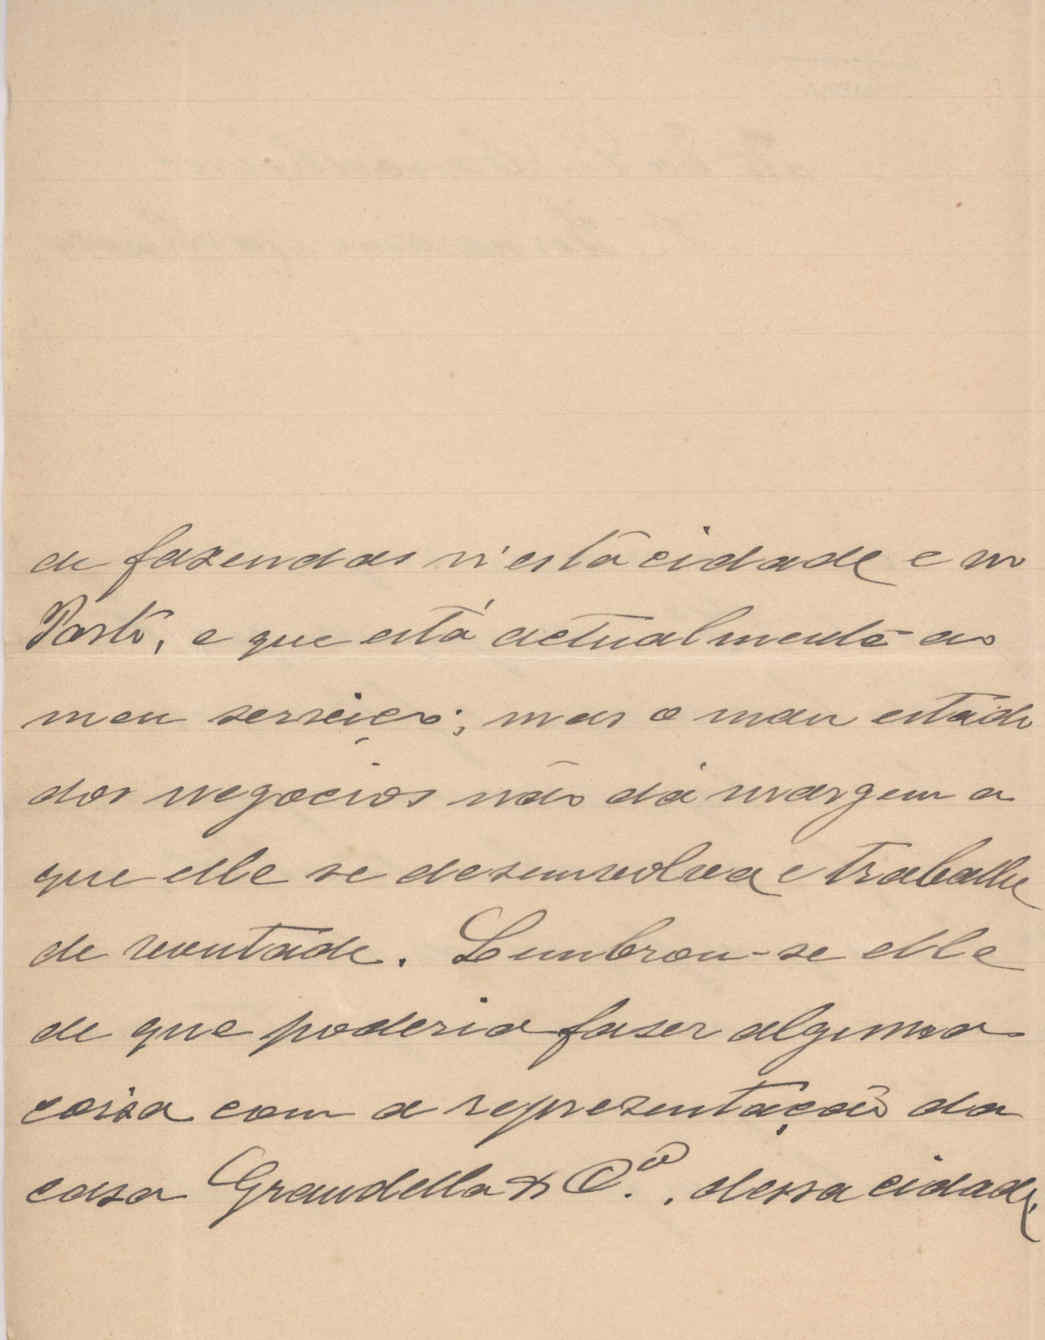 de fazendas n'esta cidade e no
Porto, e que está actualmente ao
meu serviço; mas o mau estado
dos negocios não dá margem a
que elle se desenvolva e trabalhe
de vontade. Lembrou-se elle
de que poderia faser alguma
coisa com a representação da
casa Grandella & C.ª, dessa cidade,